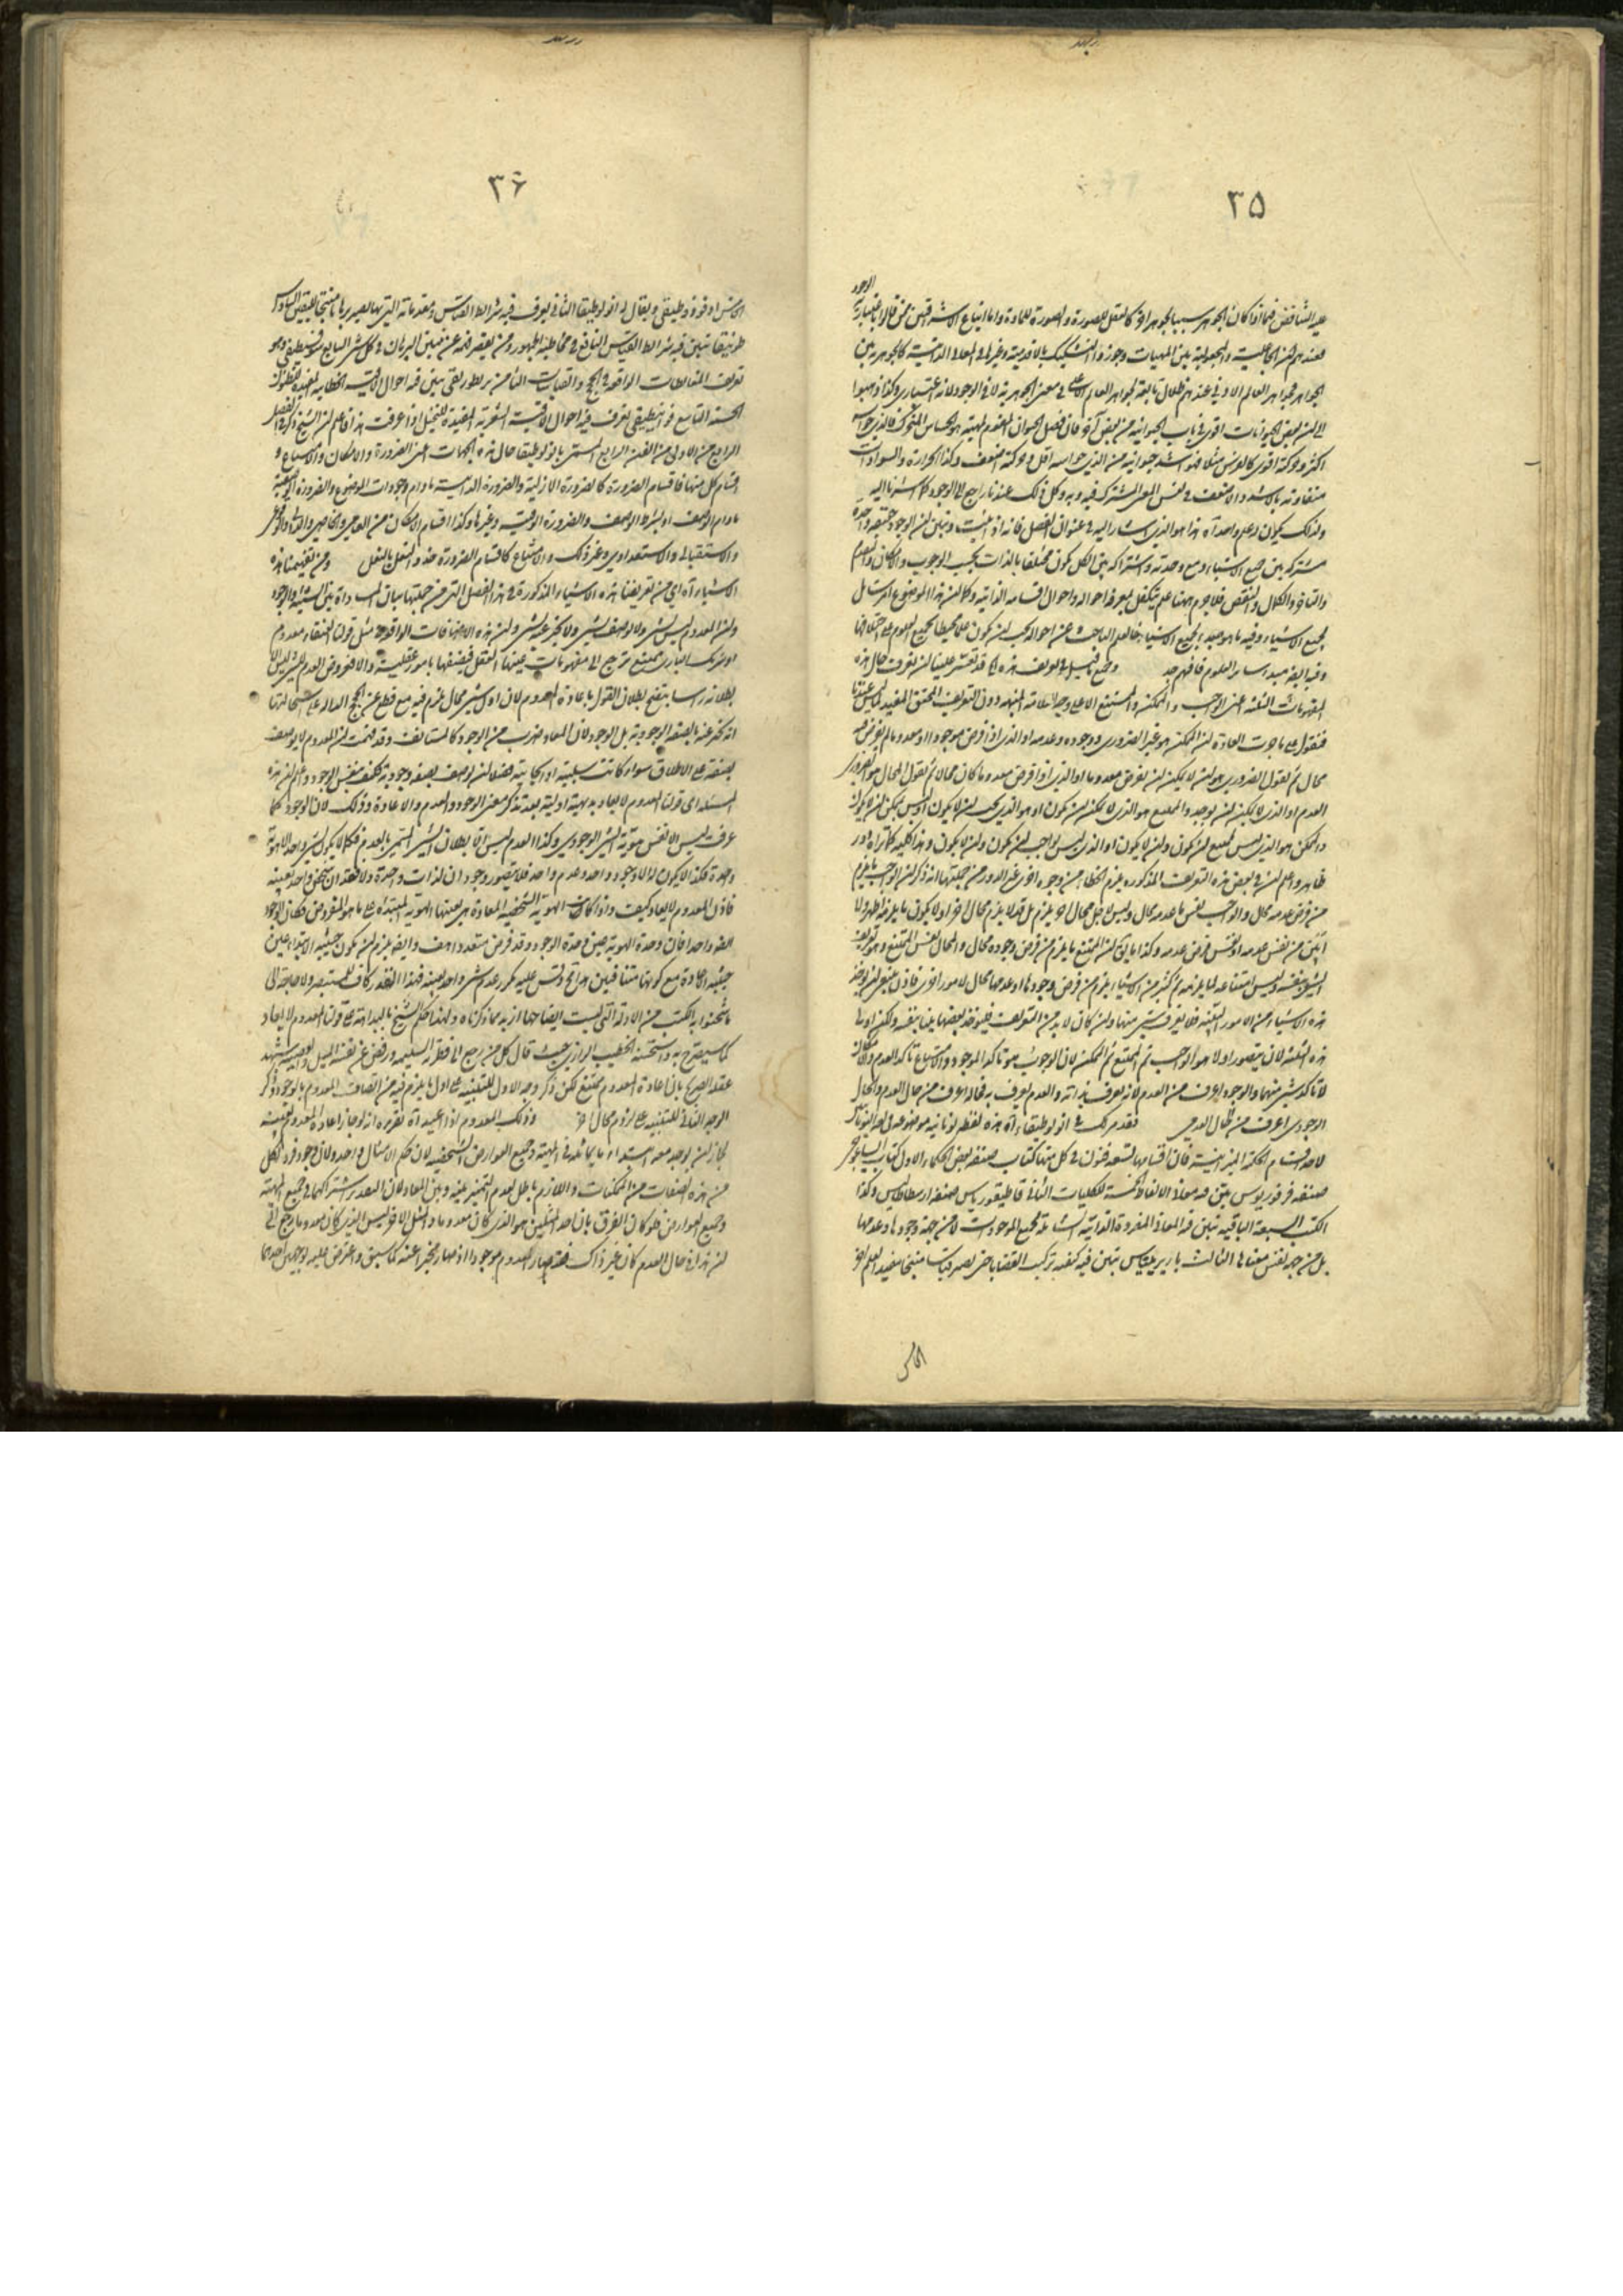 ۳۵
الوجود
عليه التناقض فيما اذا كان الجوهر سببا لجوهر آخر كالعقل للصورة والصورة للمادة واما اتباع الاشراقيين فمن قالوا باعتبارية
فعندهم ان الجاعلية والمجعولية بين المهيات وجوزوا التشكيك بالاقدمية وغيرها في المعاني الذاتية كالجوهرية بين
الجواهر فجواهر العالم الادنى عندهم ظلال تابعة لجواهر العالم الاعلى في معنى الجوهرية لا في الوجود لانه اعتباري وكذا ذهبوا
الى ان بعض الحيوانات اقوى في باب الحيوانية من بعض آخر فان فصل الحيوان المقوم لمهيته هو الحساس المتحرك فالذي حواسه
اكثر وحركته اقوى كالفرس مثلا فهو اشد حيوانية من الذي حواسه اقل وحركته اضعف وكذا الحرارة والسوادات
متفاوته بالاشد والاضعف في نفس المعنى المشترك فيه وبه وكل ذلك عندنا راجع الى الوجود كما اشرنا اليه
ولذلك يكون له علم واحد آه هذا هو الذي اشار اليه في عنوان الفصل فانه اذا ثبت وتبين ان الوجود حقيقة واحدة
مشتركة بين جميع الاشياء ومع وحدته واشتراكه بين الكل يكون مختلفا بالذات بحسب الوجوب والامكان والتقدم
والتاخر والكمال والنقص فلا جرم ههنا علم يتكفل لمعرفة احواله واحوال اقسامه الذاتية وكما ان هذا الموضوع امر شامل
لجميع الاشياء وفيه ما هو مبدء لجميع الاشياء فالعلم الباحث عن احواله يجب ان يكون علما محيطا بجميع العلوم على اختلافها
وفيه ايضا مبدء سائر العلوم فافهم جد وجميع ما قيل في تعريف هذه الى قد تعسر علينا ان نعرف حال هذه
المفهومات الثلثة اعنى الواجب والممكن والممتنع الا على وجه العلامة المنبهة دون التعريف المحقق المفيد لما ليس عندنا
فنقول على ما جرت العادة ان الممكن هو غير الضروري وجوده وعدمه او الذي اذا فرض موجودا او معدوما لم يعرض منه
محال ثم نقول الضروري هو ان لا يمكن ان يفرض معدوما او الذي اذا فرض معدوما كان محالا ثم نقول المحال هو الضروري
العدم او الذي لا يمكن ان يوجد والممتنع هو الذي لا يمكن ان يكون او هو الذي يجب ان لا يكون او ليس يمكن ان لا يكون
والممكن هو الذي ليس يمتنع ان يكون وان لا يكون او الذي ليس بواجب ان يكون وان لا يكون وهذا كله كما تراه دور
ظاهر واعلم ان في بعض هذه التعريف المذكورة يلزم الخطاء من وجوه اخرى غير الدور من جملتها انه ذكر ان الواجب ما يلزم
من فرض عدمه محال والواجب نفس ما عدمه محال وليس لاجل محال آخر يلزم بل قد لا يلزم محال آخر او لا يكون ما يلزمه اظهر ولا
ابين من نفس عدمه او نفس فرض عدمه وكذا ما يق ان الممتنع ما يلزم من فرض وجوده محال والمحال نفس الممتنع وهو تعريف
الشئ بنفسه وليس امتناعه لما يلزمه ثم كثير من الاشياء يلزم من فرض وجودها او عدمها محال لامور اخرى فاذن ينبغي ان يوخذ
هذه الاشياء من الامور البينة فلا يعرف بشئ منها وان كان لا بد من التعريف فليوخذ بعضها بينا بنفسه ولكن اولى
هذه الثلثة لان يتصور اولا هو الواجب ثم الممتنع ثم الممكن لان الوجوب هو تاكد الوجود والامتناع تاكد العدم والامكان
لا تاكد شئ منهما والوجود اعرف من العدم لانه يعرف بذاته والعدم يعرف به فحاله اعرف من حال العدم والحال
الوجودي اعرف من حال العدمي وقد مر لك في انولوطيقاء آه هذه لفظة يونانية موضوعة في لغة اليونان
لاحد اقسام الحكمة الميزانية فان اقسامها تسعة فنون في كل منها كتاب صنفه بعض الحكماء الاول كتاب ايساغوجي
صنفه فرفوريوس يبين فيه معاني الالفاظ الخمسة الكليات الثاني قاطيغورياس صنفه ارسطاطاليس وكذا
الكتب السبعة الباقيه يبين فيه المعاني المفردة الذاتية الشاملة لجميع الموجودات لا من جهة وجودها وعدمها
بل من جهة نفس معناها الثالث باريرمينياس يبين فيه كيفية تركيب القضايا حتى يصير قياسا منتجا مفيدا لعلم آخر
الخامس
۳۶
الخامس افوذوطيقى ويقال له انولوطيقا الثاني يعرف فيه شرائط القياس ومقدماته التي بها يصير برهانا منتجا لليقين السادس
طوبيقا يبين فيه شرائط القياس النافع في مخاطبة الجمهور ومن يقصر فهمه عن تبين البرهان في كل شئ السابع سوفسطيقى وهو
تعريف المغالطات الواقعة في الحجج والقياسات الثامن ريطوريقى يبين فيه احوال الاقيسة الخطابية المفيدة للظنون
الحسنة التاسع فوانيطيقى يعرف فيه احوال الاقيسة الشعرية المفيدة للتخيل اذا عرفت هذا فاعلم ان الشيخ ذكر في الفصل
الرابع من الاولى من الفن الرابع المسمى بانولوطيقا حال هذه الجهات اعنى الضرورة والامكان والامتناع و
اقسام كل منها فاقسام الضرورة كالضرورة الازلية والضرورة الذاتية ما دام وجود ذات الموضوع والضرورة الوصفية
ما دام الوصف او بشرط الوصف والضرورة الوقتية وغيرها وكذا اقسام الامكان من العامي والخاصي والاخصي والوقوعي
والاستقبالي والاستعدادي وغير ذلك والامتناع كاقسام الضرورة حذو النعل بالنعل ومن تفهيمنا هذه
الاشياء آه اي من تعريفنا هذه الاشياء المذكورة في هذا الفصل التي من جملتها بيان المساواة بين الشيئية والوجود
وان المعدوم ليس بشئ ولا يوصف بشئ ولا يخبر عنه بشئ وان هذه الاضافات الواقعة في مثل قولنا العنقاء معدوم
او شريك الباري ممتنع ترجع الى مفهومات يعينها العقل فيصفها بامور عقلية والا فمفروض العدم لا شئ ليس الا
بطلانه راسا يتضح بطلان القول باعادة المعدوم لان اول شئ محال يلزم فيه مع قطع عن الحجج الدالة على استحالتها
انه يخبر عنه بالصفة الوجودية بل الوجود لان المعاد ضرب من الوجود كالمستانف وقد فهمت ان المعدوم لا يوصف
بصفة على الاطلاق سواء كانت سلبية او ايجابية فضلا ان يوصف بصفة وجودية فكيف بنفس الوجود واعلم ان هذه
المسئلة اي قولنا المعدوم لا يعاد بديهية اولية بعد تذكر معنى الوجود والعدم والاعادة وذلك لان الوجود كما
عرفت ليس الا نفس هوية الشئ الوجودي وكذا العدم ليس الا بطلان الشئ المسمى بالعدم فكما لا يكون لشئ واحد الا هوية
واحدة فكذا لا يكون له الا وجود واحد وعدم واحد فلا يتصور وجودان لذات واحدة ولا فقدان شخص واحد بعينه
فاذن المعدوم لا يعاد كيف واذا كانت الهوية الشخصية المعادة هي بعينها الهوية المبتدأة على ما هو المفروض فكان الوجود
ايضا واحدا فان وحدة الهوية عين وحدة الوجود وقد فرض متعددا هف وايضا يلزم ان يكون حيثية الابتداء عين
حيثية الاعادة مع كونهما متنافيين هذا محال وقس عليه تكرر عدم شئ واحد بعينه فهذا القدر كاف للمستبصر ولا حاجة الى
ما شحنوا به الكتب من الادلة التي ليست ايضاحها ازيد مما ذكرناه ولهذا حكم الشيخ بالبداهة على قولنا المعدوم لا يعاد
كما سيصرح به واستحسنه الخطيب الرازي حيث قال كل من رجع الى فطرته السليمة ورفض عن نفسه الميل والعصبية شهد
عقله الصريح بان اعادة المعدوم ممتنع لكن ذكر وجه الاول للتنبيه على اول ما يلزم فيه من اتصاف المعدوم بالوجود وذكر
الوجه الثاني للتنبيه على لزوم محال آخر وذلك المعدوم اذا اعيد آه تقريره انه لو جاز اعادة المعدوم بعينه
لجاز ان يوجد معه ابتداء ما يماثله في المهية وجميع العوارض الشخصيه لان حكم الامثال واحد ولان وجود فرد لكل
من هذه الصفات من الممكنات واللازم باطل لعدم التميز بينه وبين المعاد لان التقدير اشتراكهما في جميع المهية
وجميع العوارض فلو كان الفرق بان احد المثلين هو الذي كان معدوما والمثل الاخر ليس الذي كان معدوما رجع الى
ان هذا في حال العدم كان غير ذاك فقد صار المعدوم موجودا اذ صار مخبرا عنه كما سبق واعترض عليه بوجهين احدهما